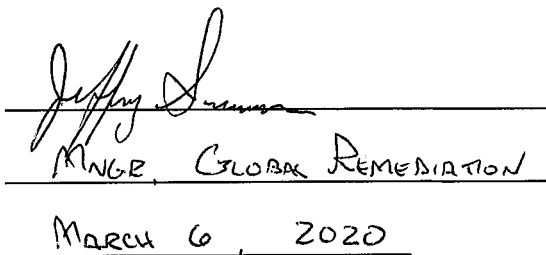 Jeffrey
MNGR, GLOBAL REMEDIATION
MARCH 6, 2020